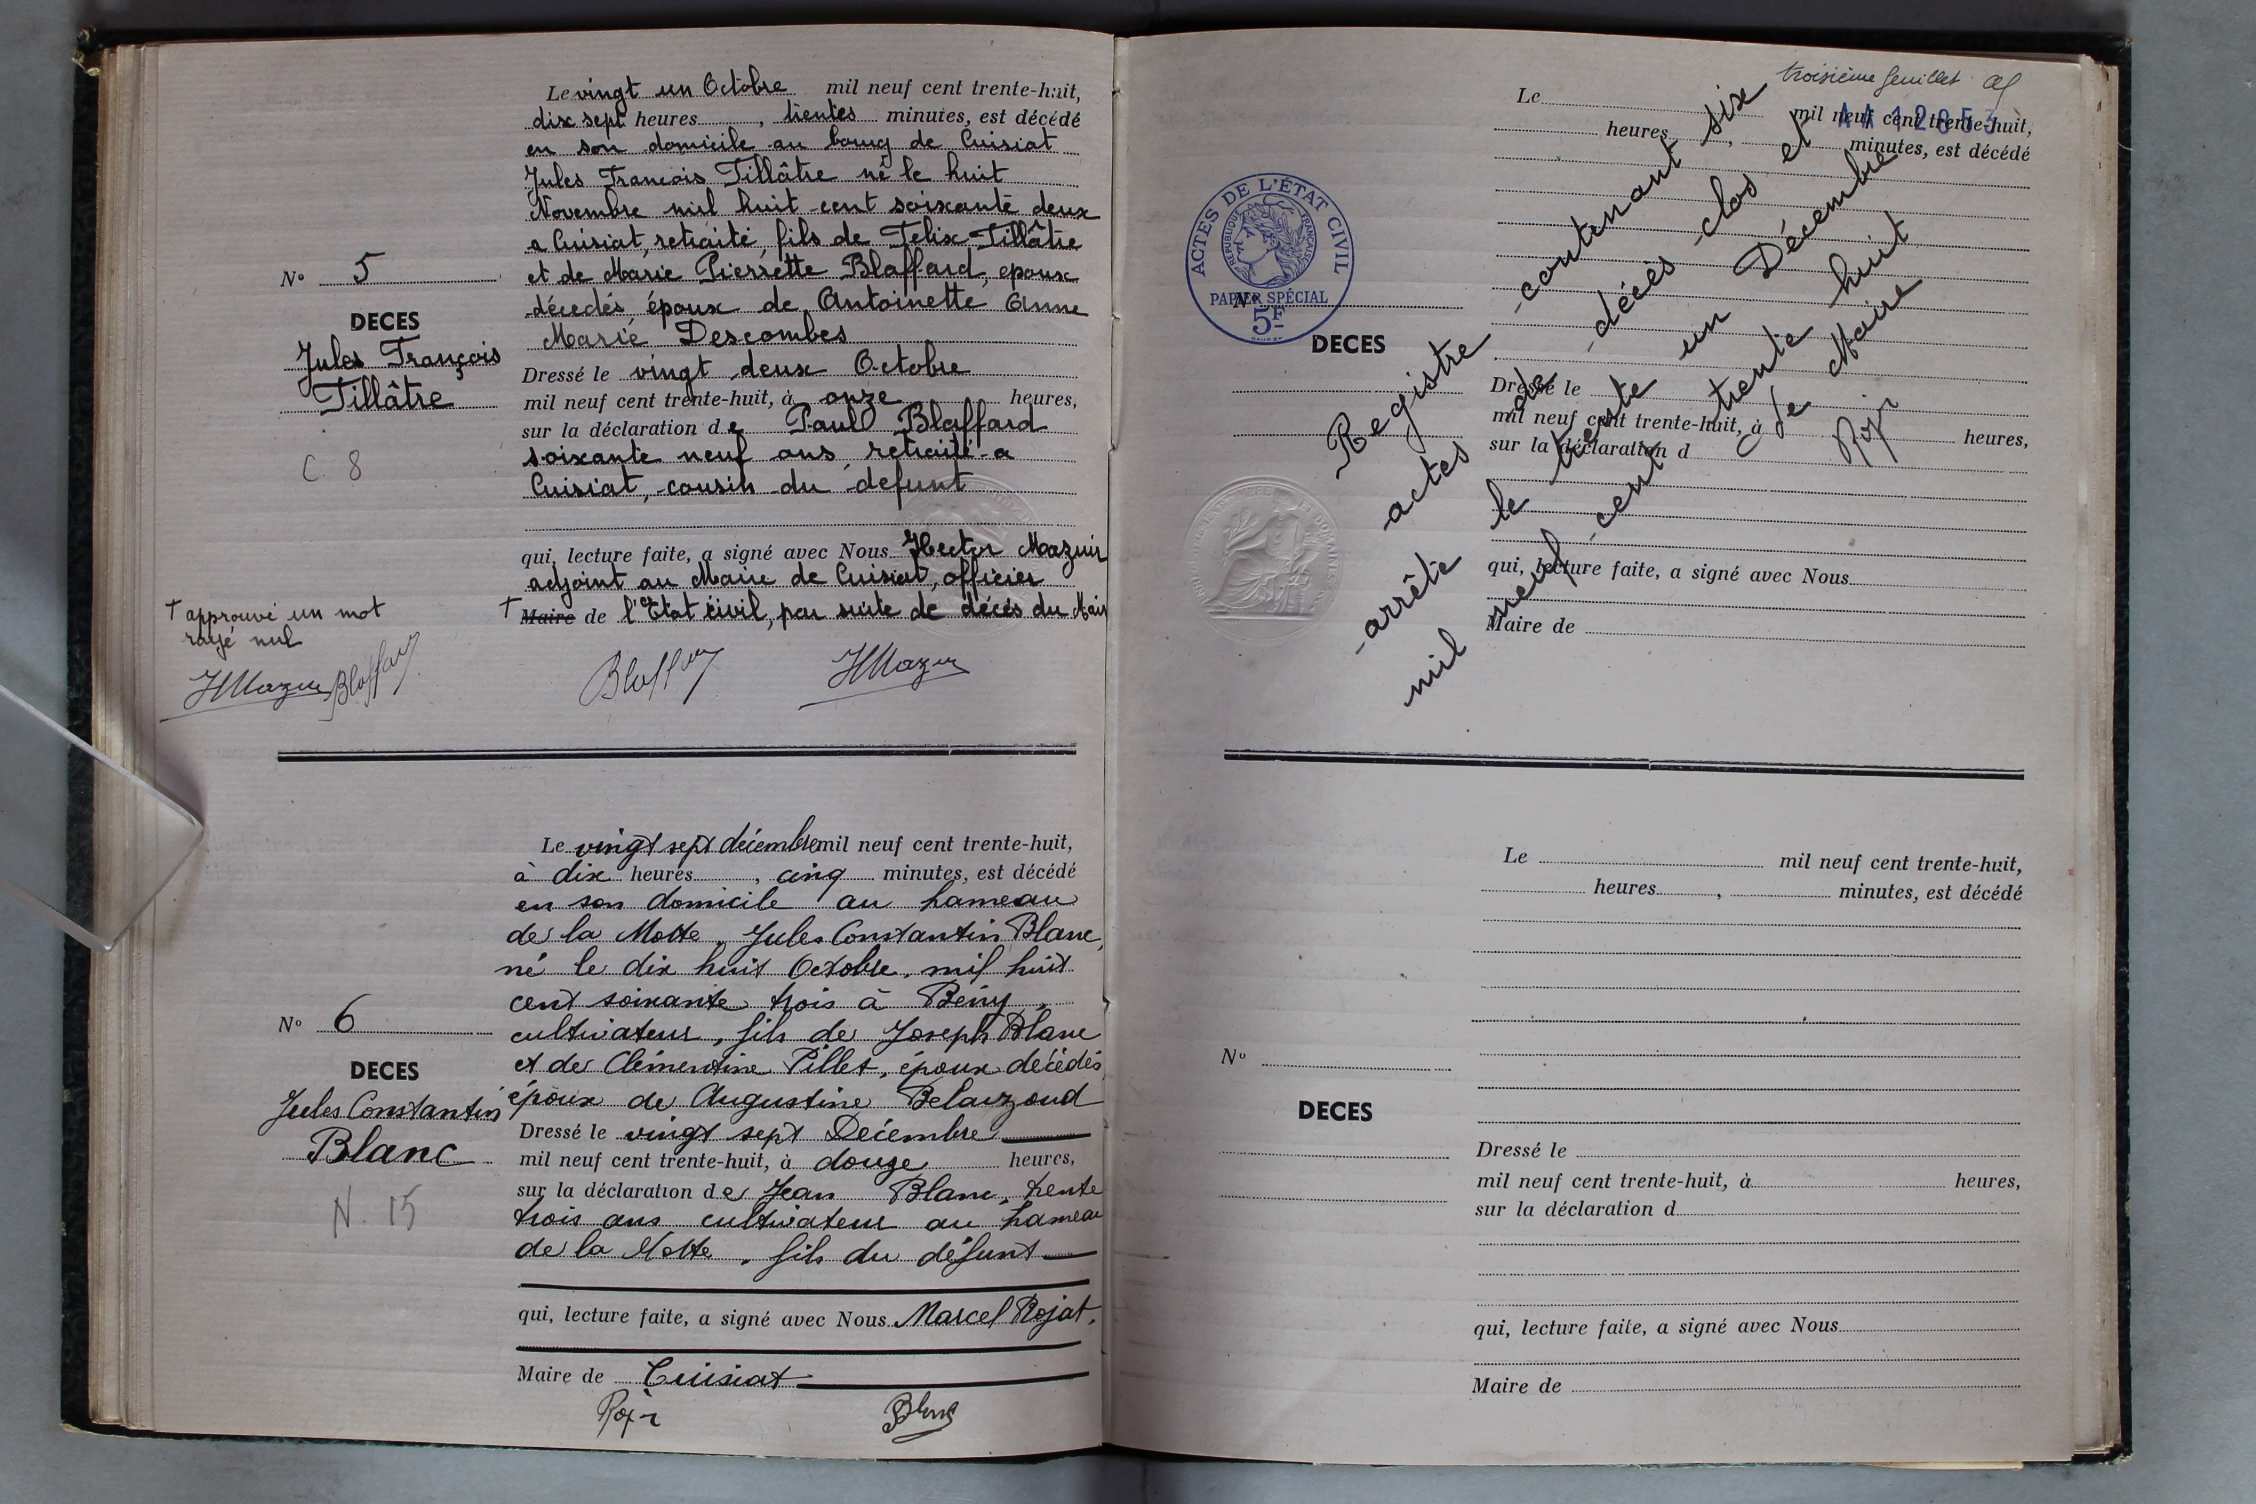 Le vingt un Octobre mil neuf cent trente-huit,
dix sept heures, trentes minutes, est décédé
en son domicile au bourg de Cuisiat
Jules François Tillâtre né le huit
Novembre mil huit cent soixante deux
a Cuisiat, retraité, fils de Felix Tillâtre
et de Marie Pierrette Blaffard, epoux
décedés époux de Antoinette Anne
Marie Descombes
Nº 5
DECES
Jules François
Tillâtre
C. 8
Dressé le vingt deux Octobre
mil neuf cent trente-huit, à onze heures,
sur la déclaration de Paul Blaffard
soixante neuf ans, retraité a
Cuisiat, cousin du defunt
qui, lecture faite, a signé avec Nous Hector Mazuir
adjoint au Maire de Cuisiat, officier
† Maire de l'Etat civil, par suite de décés du Mair
† approuvé un mot
rayé nul
HMazuir Blaffard
Blaffard HMazuir
Le vingt sept décembre mil neuf cent trente-huit,
à dix heures, cinq minutes, est décédé
en son domicile au hameau
de la Motte, Jules Constantin Blanc,
né le dix huit Octobre, mil huit
cent soixante trois à Bény,
cultivateur, fils de Joseph Blanc
et de Clémentine Pillet, époux décédés,
époux de Augustine Belaizoud
Nº 6
DECES
Jules Constantin
Blanc
N. 15
Dressé le vingt sept Décembre
mil neuf cent trente-huit, à douze heures,
sur la déclaration de Jean Blanc, trente
trois ans cultivateur au hameau
de la Motte, fils du défunt
qui, lecture faite, a signé avec Nous Marcel Rojat,
Maire de Cuisiat
Blanc
troisième feuillet
Le mil neuf cent trente-huit,
heures, minutes, est décédé
ACTES DE L'ÉTAT CIVIL
RÉPUBLIQUE FRANÇAISE
PAPIER SPÉCIAL
5F
Nº
DECES
Registre contenant six
actes de décès clos et
arrête le trente un Décembre
mil neuf cent trente huit
Le Maire
Dressé le
mil neuf cent trente-huit, à heures,
sur la déclaration d
qui, lecture faite, a signé avec Nous
Maire de
Le mil neuf cent trente-huit,
heures, minutes, est décédé
Nº
DECES
Dressé le
mil neuf cent trente-huit, à heures,
sur la déclaration d
qui, lecture faite, a signé avec Nous
Maire de